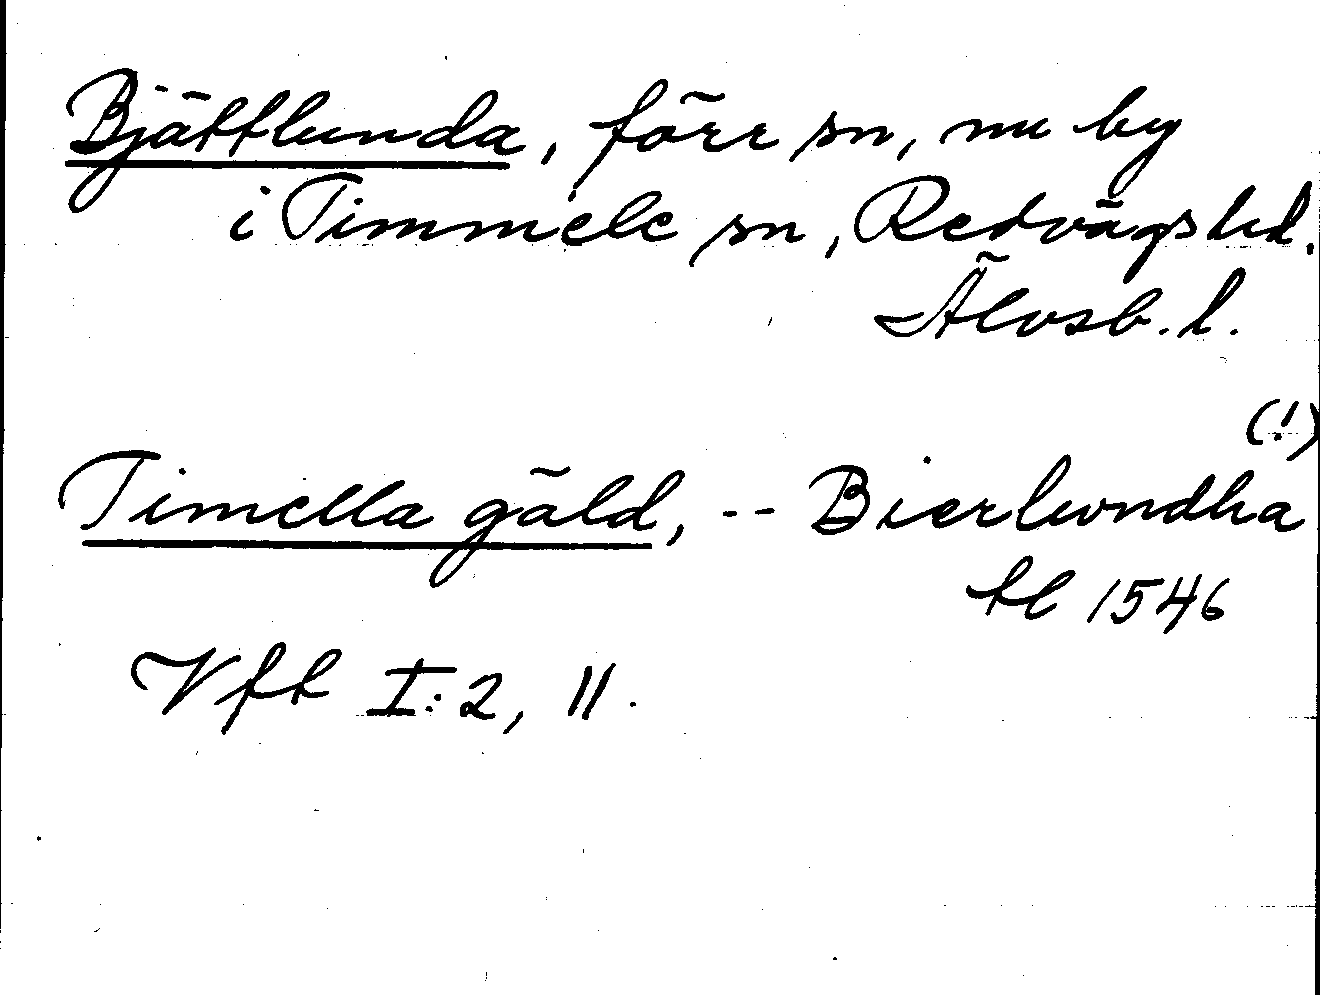 Bjättlunda, förr sn, nu by
i Timmele sn, Redvägs hd.
Älvsb. l.
(!)
Timella gäld, -- Bierlwndha
tl 1546
Vfk I:2, 11.